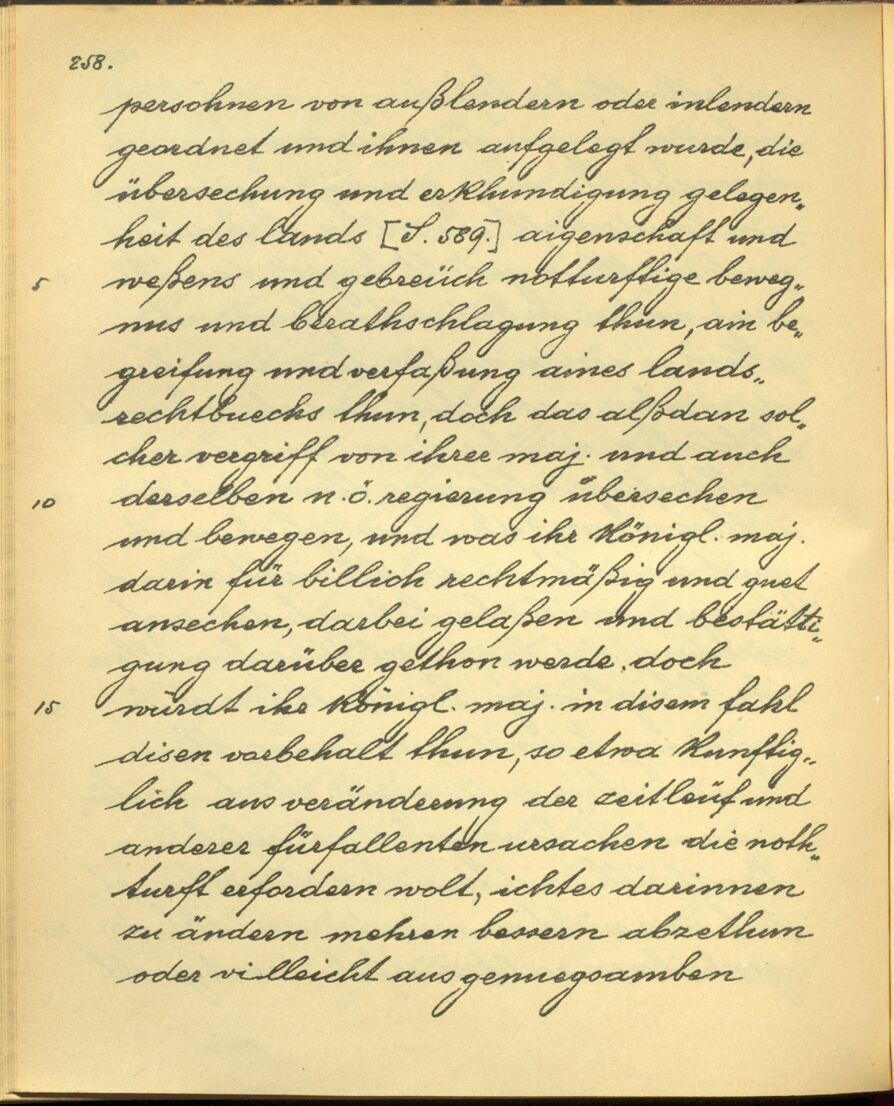 258.
persohnen von außlendern oder inlendern
geordnet und ihnen aufgelegt wurde, die
übersechung und erkhundigung gelegen„
heit des lands [S. 589.] aigenschaft und
5 weßens und gebreüch notturftige beweg„
nus und berathschlagung thun, ain be„
greifung und verfaßung aines lands„
rechtbuechs thun, doch das alßdan sol„
cher vergriff von ihrer maj. und auch
10 derselben n. ö. regierung übersechen
und bewegen, und was ihr Königl. maj.
darin für billich rechtmäßig und guet
ansechen, darbei gelaßen und bestätti„
gung darüber gethon werde. doch
15 würdt ihr Königl. maj. in disem fahl
disen vorbehalt thun, so etwa Kunftig„
lich aus veränderung der zeitleüf und
anderer fürfallenten ursachen die noth„
turft erfordern wolt, ichtes darinnen
zu ändern mehren bessern abzethun
oder villeicht aus genuegsamben